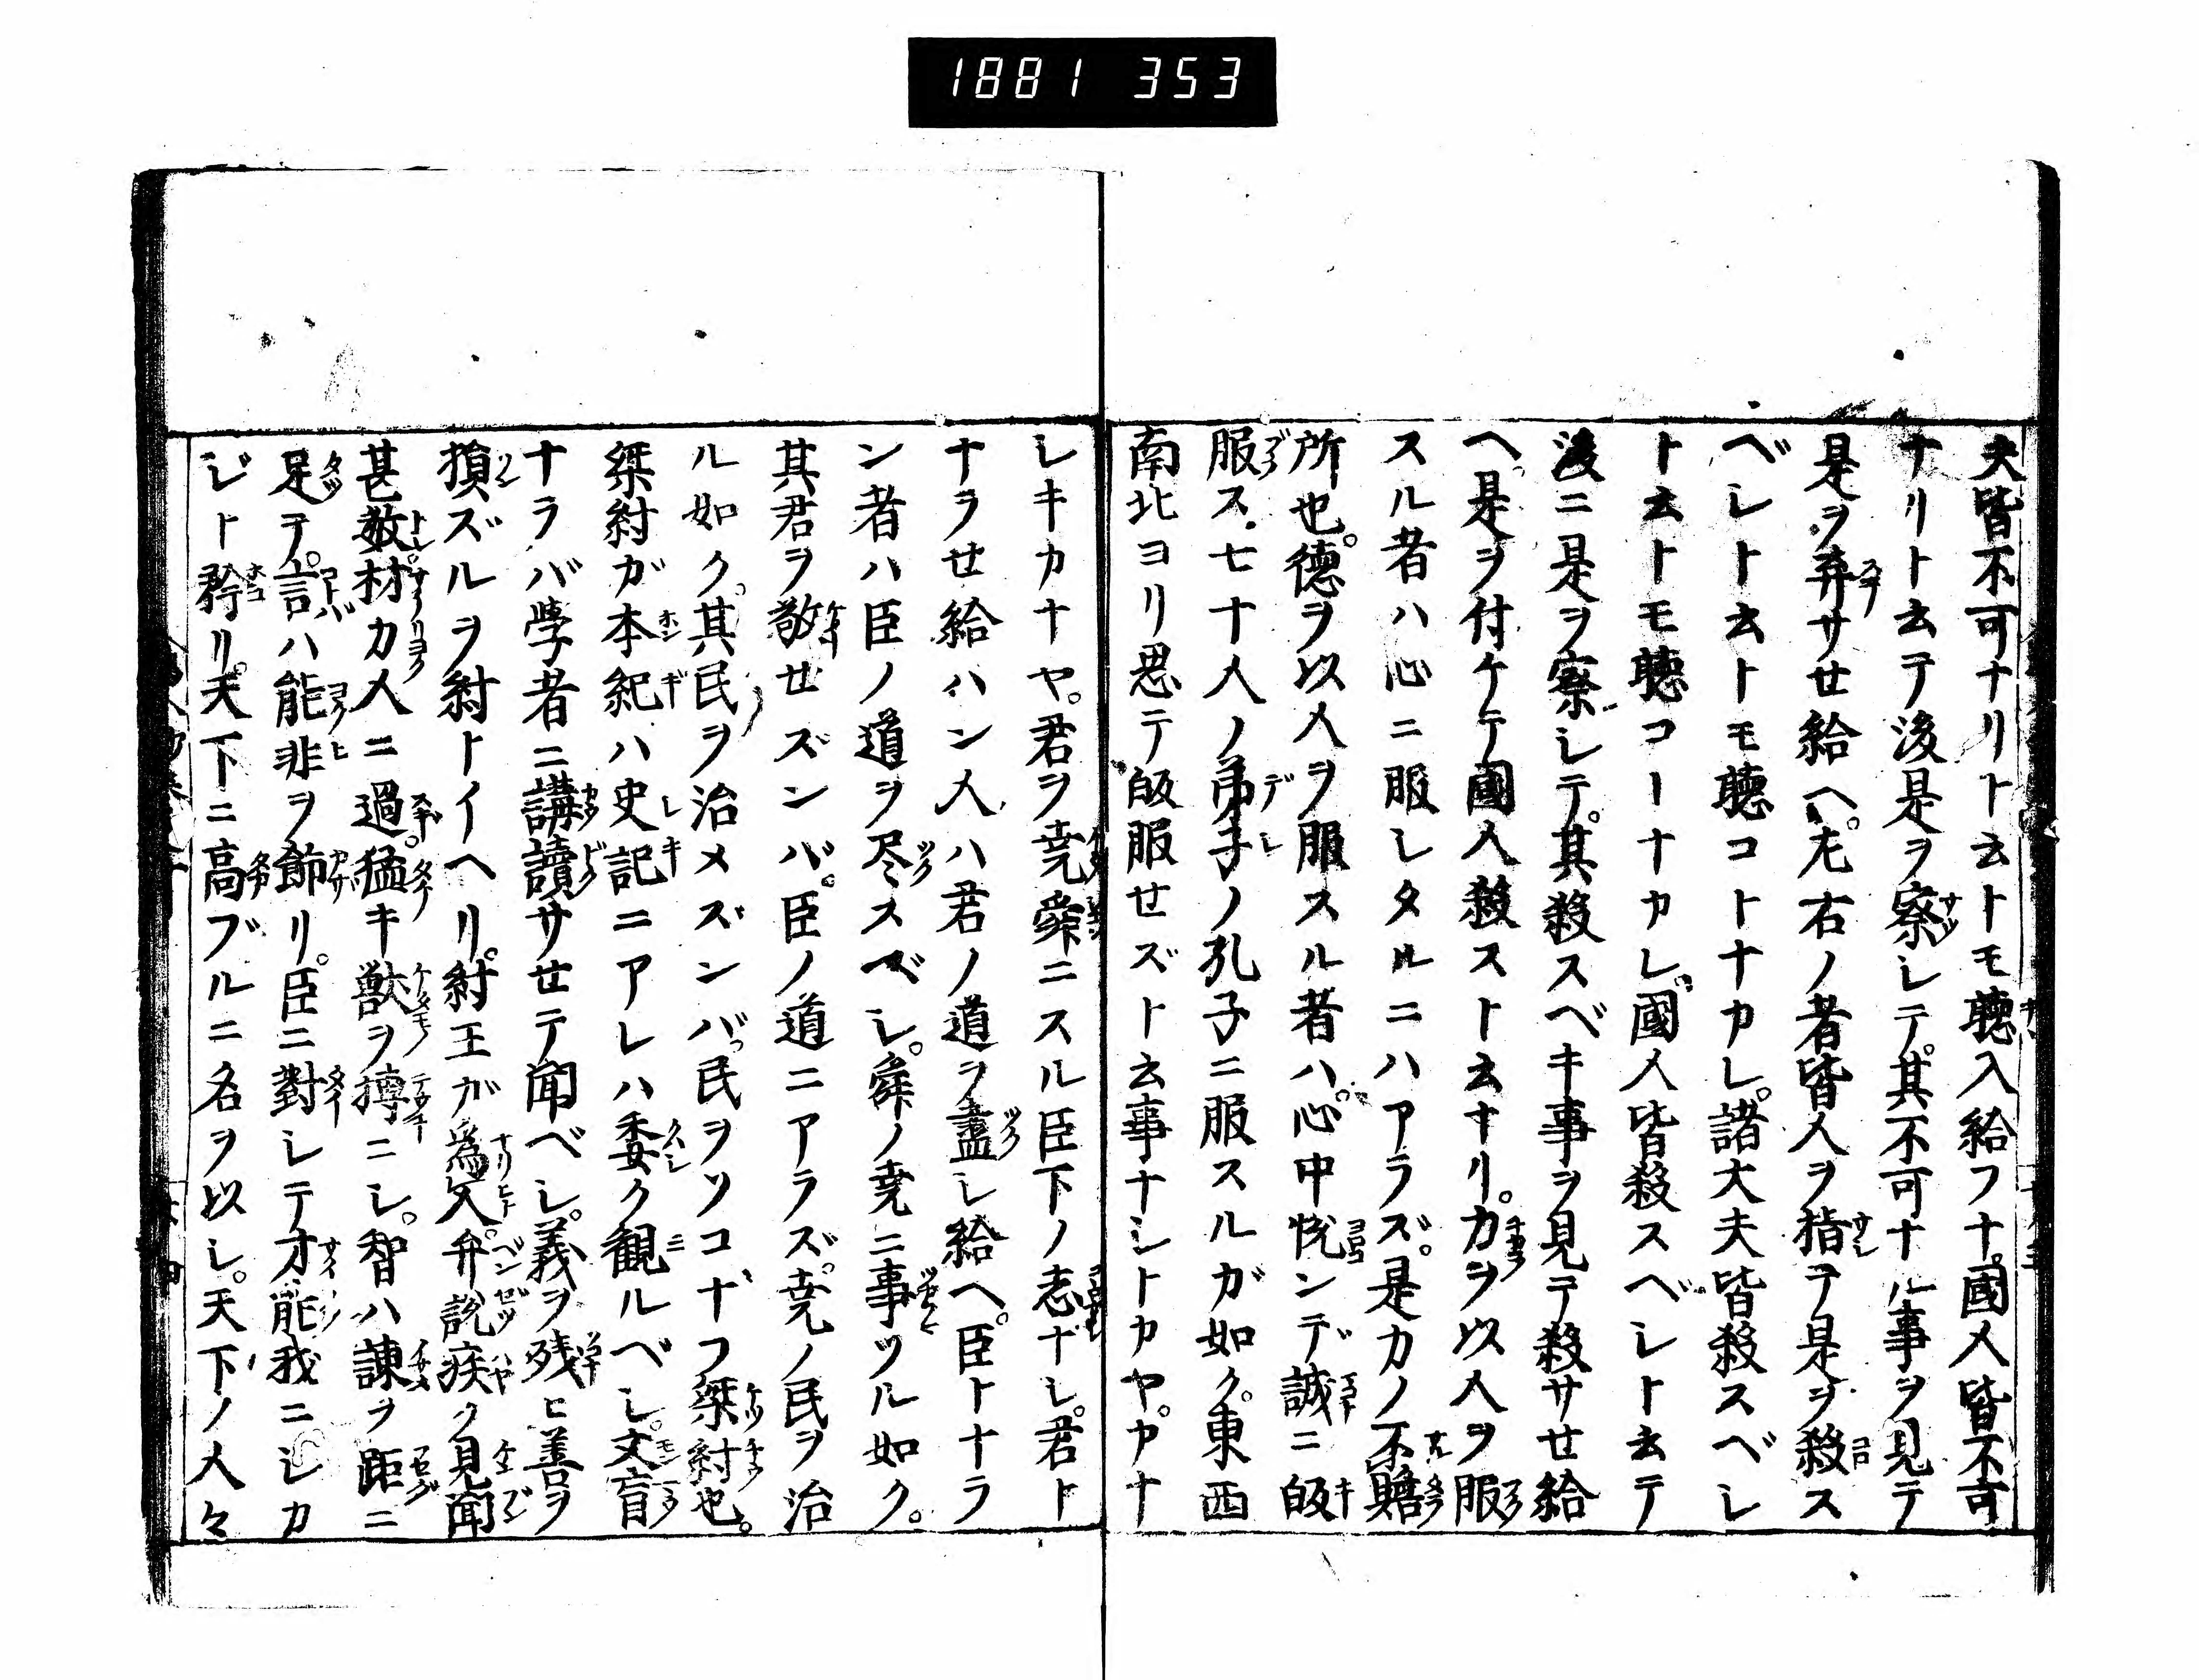 1881 353
夫皆不可ナリト云トモ聴入給フナ。國人皆不可
ナリト云テ後是ヲ察シテ。其不可ナル事ヲ見テ
是ヲ弃サセ給ヘ。左右ノ者皆人ヲ指テ是ヲ殺ス
ベシト云トモ聴コトナカレ。諸大夫皆殺スベシ
ト云トモ聴コーナカレ。國人皆殺スベシト云テ
後ニ是ヲ察シテ。其殺スベキ事ヲ見テ殺サセ給
ヘ。是ヲ付ケテ國人殺スト云ナリ。力ヲ以人ヲ服
スル者ハ心ニ服シタルニハアラズ。是力ノ不贍
所也。德ヲ以人ヲ服スル者ハ。心中悦ンデ誠ニ皈
服ス。七十人ノ弟子ノ孔子ニ服スルガ如ク。東西
南北ヨリ思テ皈服せズト云事ナシトカヤ。カナ
シキカナヤ。君ヲ堯舜ニスル臣下ノ志ナシ。君ト
ナラせ給ハン人ハ君ノ道ヲ盡シ給ヘ。臣トナラ
ン者ハ臣ノ道ヲ尽スベシ。舜ノ堯ニ事ツル如ク。
其君ヲ敬せズンバ。臣ノ道ニアラズ。堯ノ民ヲ治
ル如ク。其民ヲ治メズンバ。民ヲソコナフ桀紂也。
桀紂ガ本紀ハ史記ニアレハ委ク観ルベシ。文盲
ナラバ学者ニ講讀サせテ聞ベシ。義ヲ残ヒ善ヲ
損ズルヲ紂トイヘリ。紂王ガ為人。弁說疾ク見聞
甚敏。材力人ニ過。猛キ獣ヲ搏ニシ。智ハ諫ヲ距ニ
足テ。言ハ能非ヲ飾リ。臣ニ對シテ才能我ニシカ
ジト矜リ。天下ニ高ブルニ名ヲ以シ。天下ノ人々